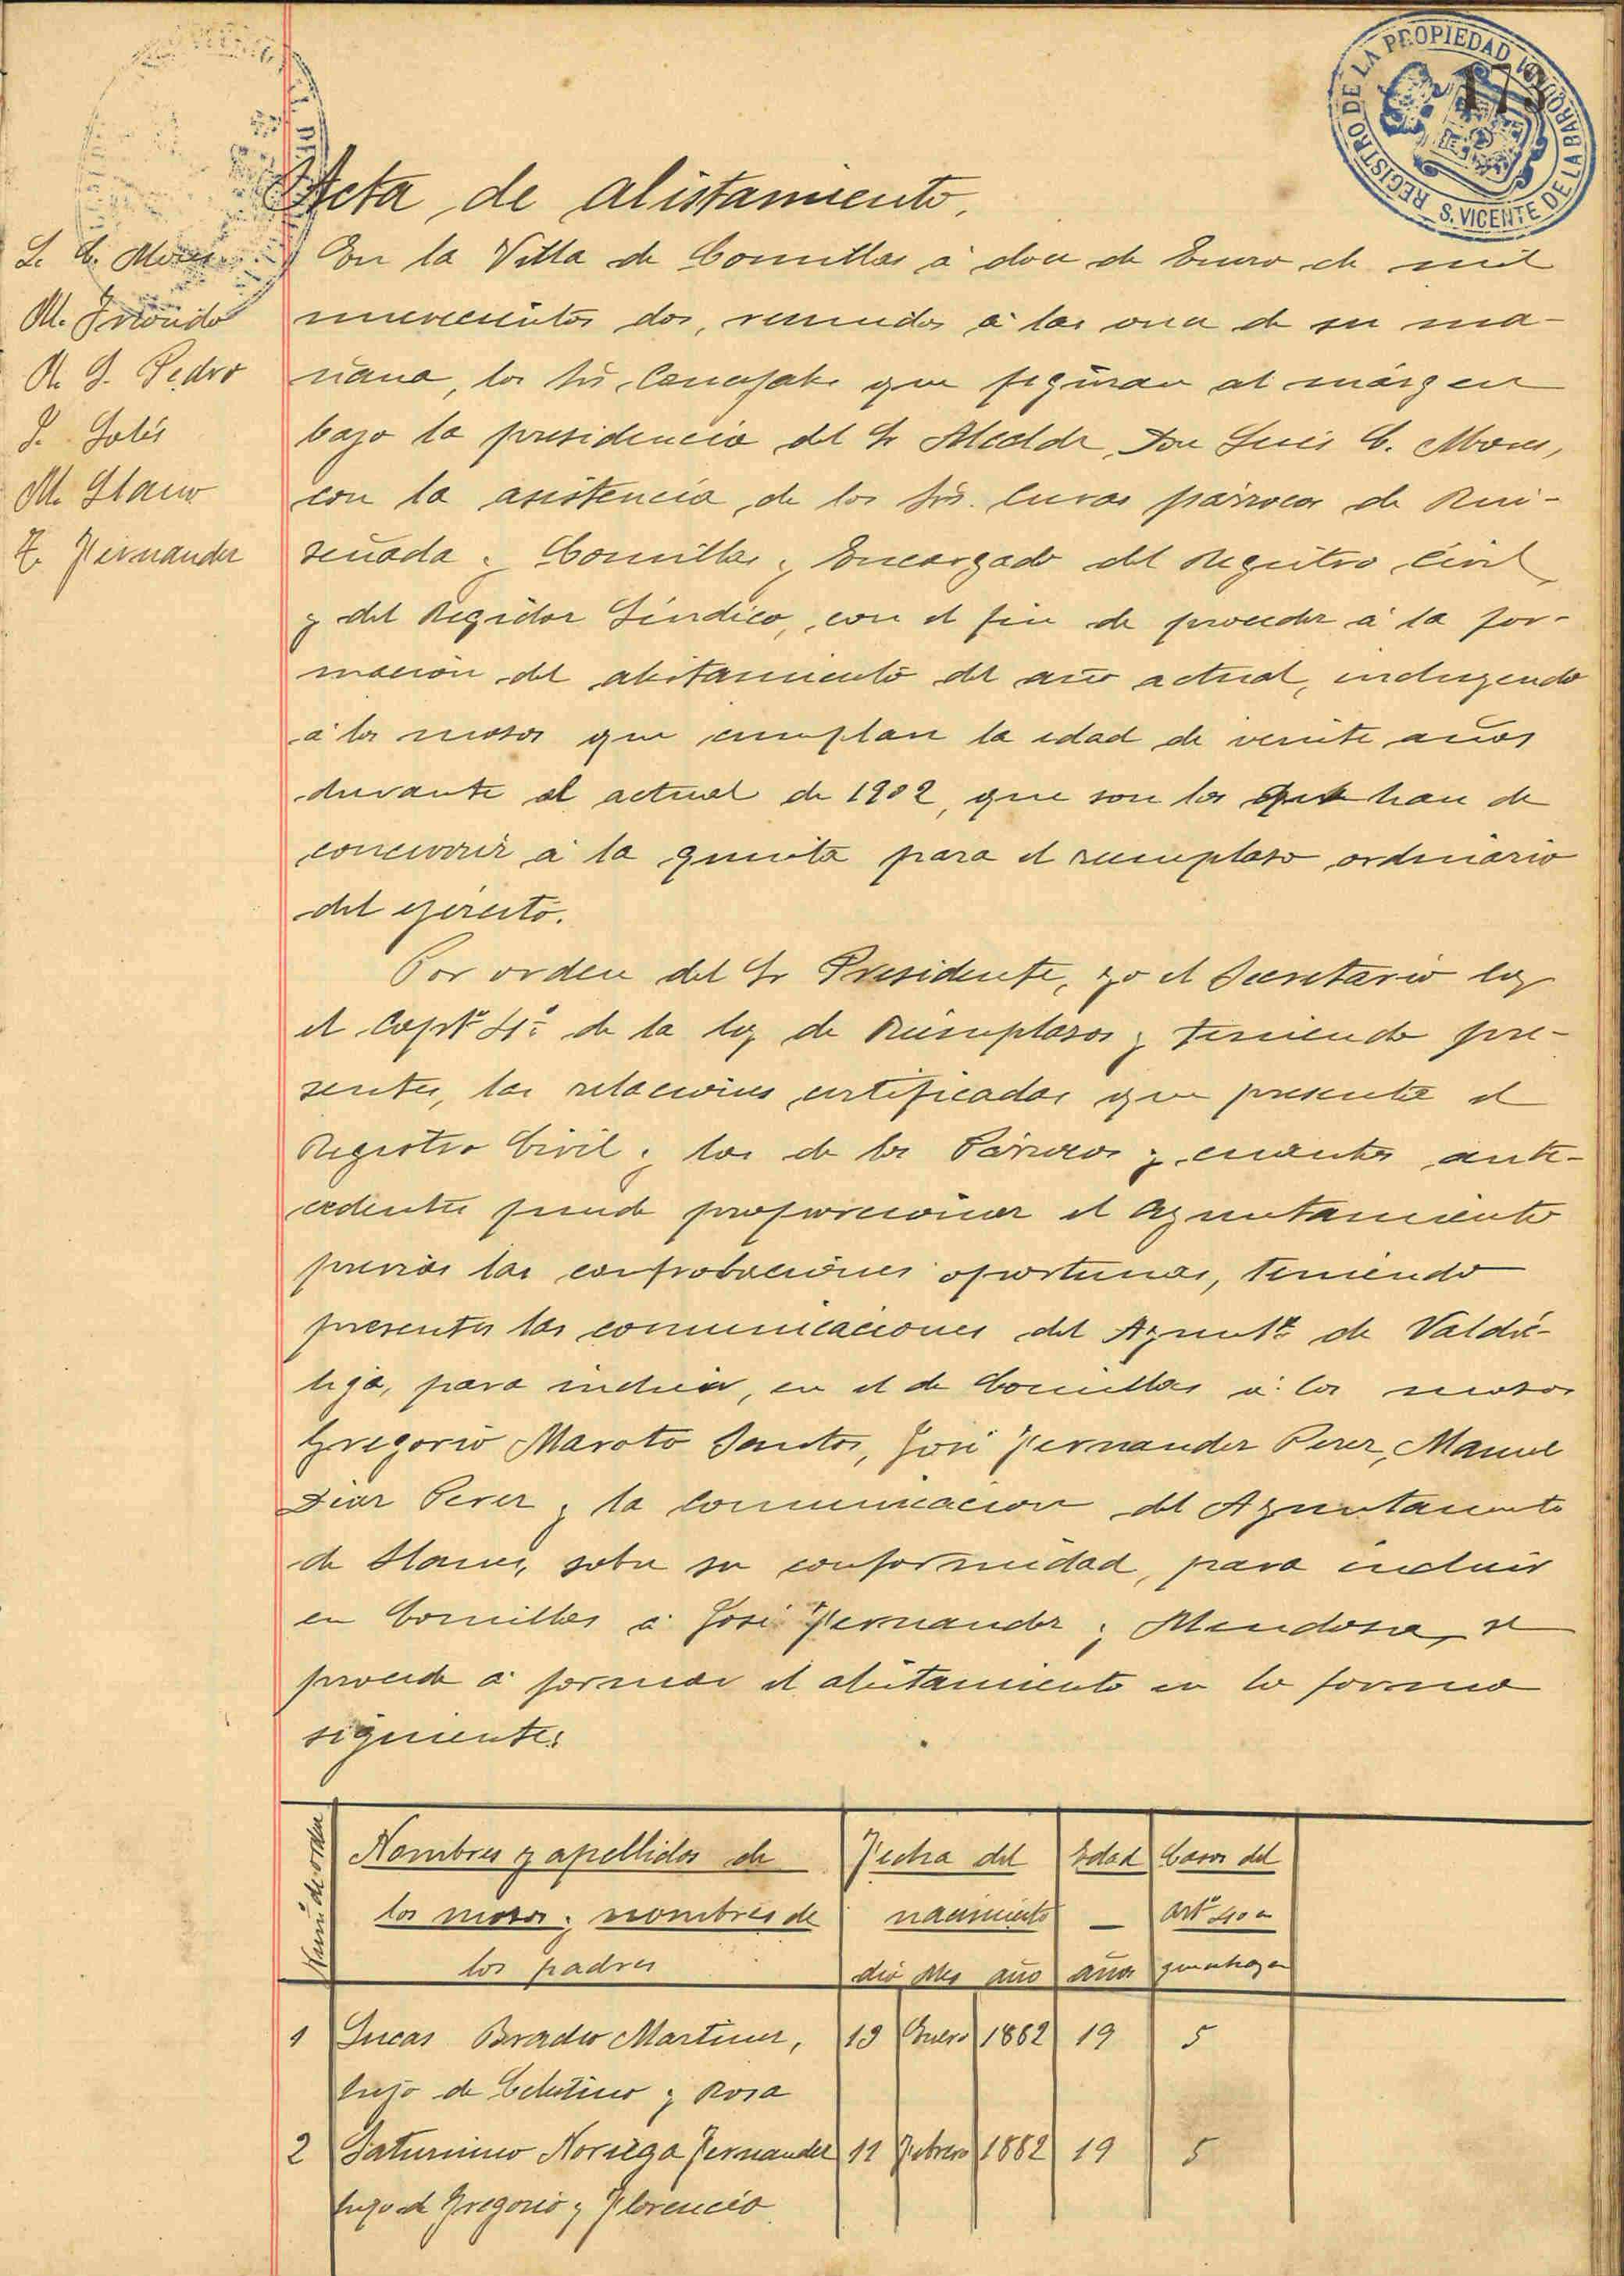 REGISTRO DE LA PROPIEDAD
S. VICENTE DE LA BARQUERA
173
Acta de alistamiento.
L. C. Mores
M. Iriondo
N. S. Pedro
J. Solís
M. Llano
F. Fernandez
En la Villa de Comillas á doce de Enero de mil
novecientos dos, reunidos á las once de su ma-
ñana, los Srs Concejales que figuran al márgen
bajo la presidencia del Sr Alcalde, Don Luis C. Mores,
con la asistencia, de los Srs. Curas párrocos de Rui-
señada y Comillas y Encargado del Registro Civil,
y del Regidor Síndico, con el fin de proceder á la for-
macion del alistamiento del año actual, incluyendo
á los mosos que cumplan la edad de veinte años
durante el actual de 1902, que son los que han de
concurrir á la quinta para el reemplaso ordinario
del ejército.
Por orden del Sr Presidente, yo el Secretario ley
el Captº 4º de la ley de Reemplasos y teniendo pre-
sentes, las relaciones certificadas que presenta el
Registro Civil y las de los Párrocos y cuantos ante-
cedentes puede proporcionar el Ayuntamiento
previas las conprobaciones oportunas, teniendo
presentes las comunicaciones del Ayuntº de Valdá-
liga, para incluir, en el de Comillas á los mosos
Gregorio Maroto Santos, José Fernandez Perez, Manuel
Diaz Perez y la comunicacion del Ayuntamiento
de Llanes, sobre su conformidad, para incluir
en Comillas á José Fernandez y Mendosa, se
procede á formar el alistamiento en la forma
siguiente:
Numº de orden
Nombres y apellidos de
los mosos y nombres de
los padres
Fecha del
nacimiento
dia Mes año
Edad
—
años
Casos del
Artº 40 en
1 Lucas Martinez, 19 Enero 1882 19 5
hijo de Celestino y Rosa
2 Saturnino Noriega Fernandez 11 Febrero 1882 19 5
hijo de Gregorio y Florencia